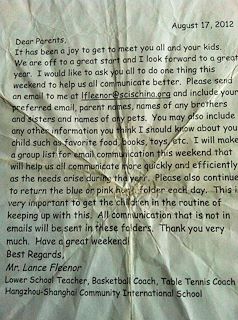 August 17, 2012
Dear Parents,
It has been a joy to get to meet you all and your kids.
We are off to a great start and I look forward to a great
year. I would like to ask you all to do one thing this
weekend to help us all communicate better. Please send
an email to me at lfleenor@scischina.org and include your
preferred email, parent names, names of any brothers
and sisters and names of any pets. You may also include
any other information you think I should know about you
child such as favorite food, books, toys, etc. I will make
a group list for email communication this weekend that
will help us all communicate more quickly and efficiently
as the needs arise during the year. Please also continue
to return the blue or pink folder each day. This is
very important to get the children in the routine of
keeping up with this. All communication that is not in
emails will be sent in these folders. Thank you very
much. Have a great weekend!
Best Regards,
Mr. Lance Fleenor
Lower School Teacher, Basketball Coach, Table Tennis Coach
Hangzhou-Shanghai Community International School